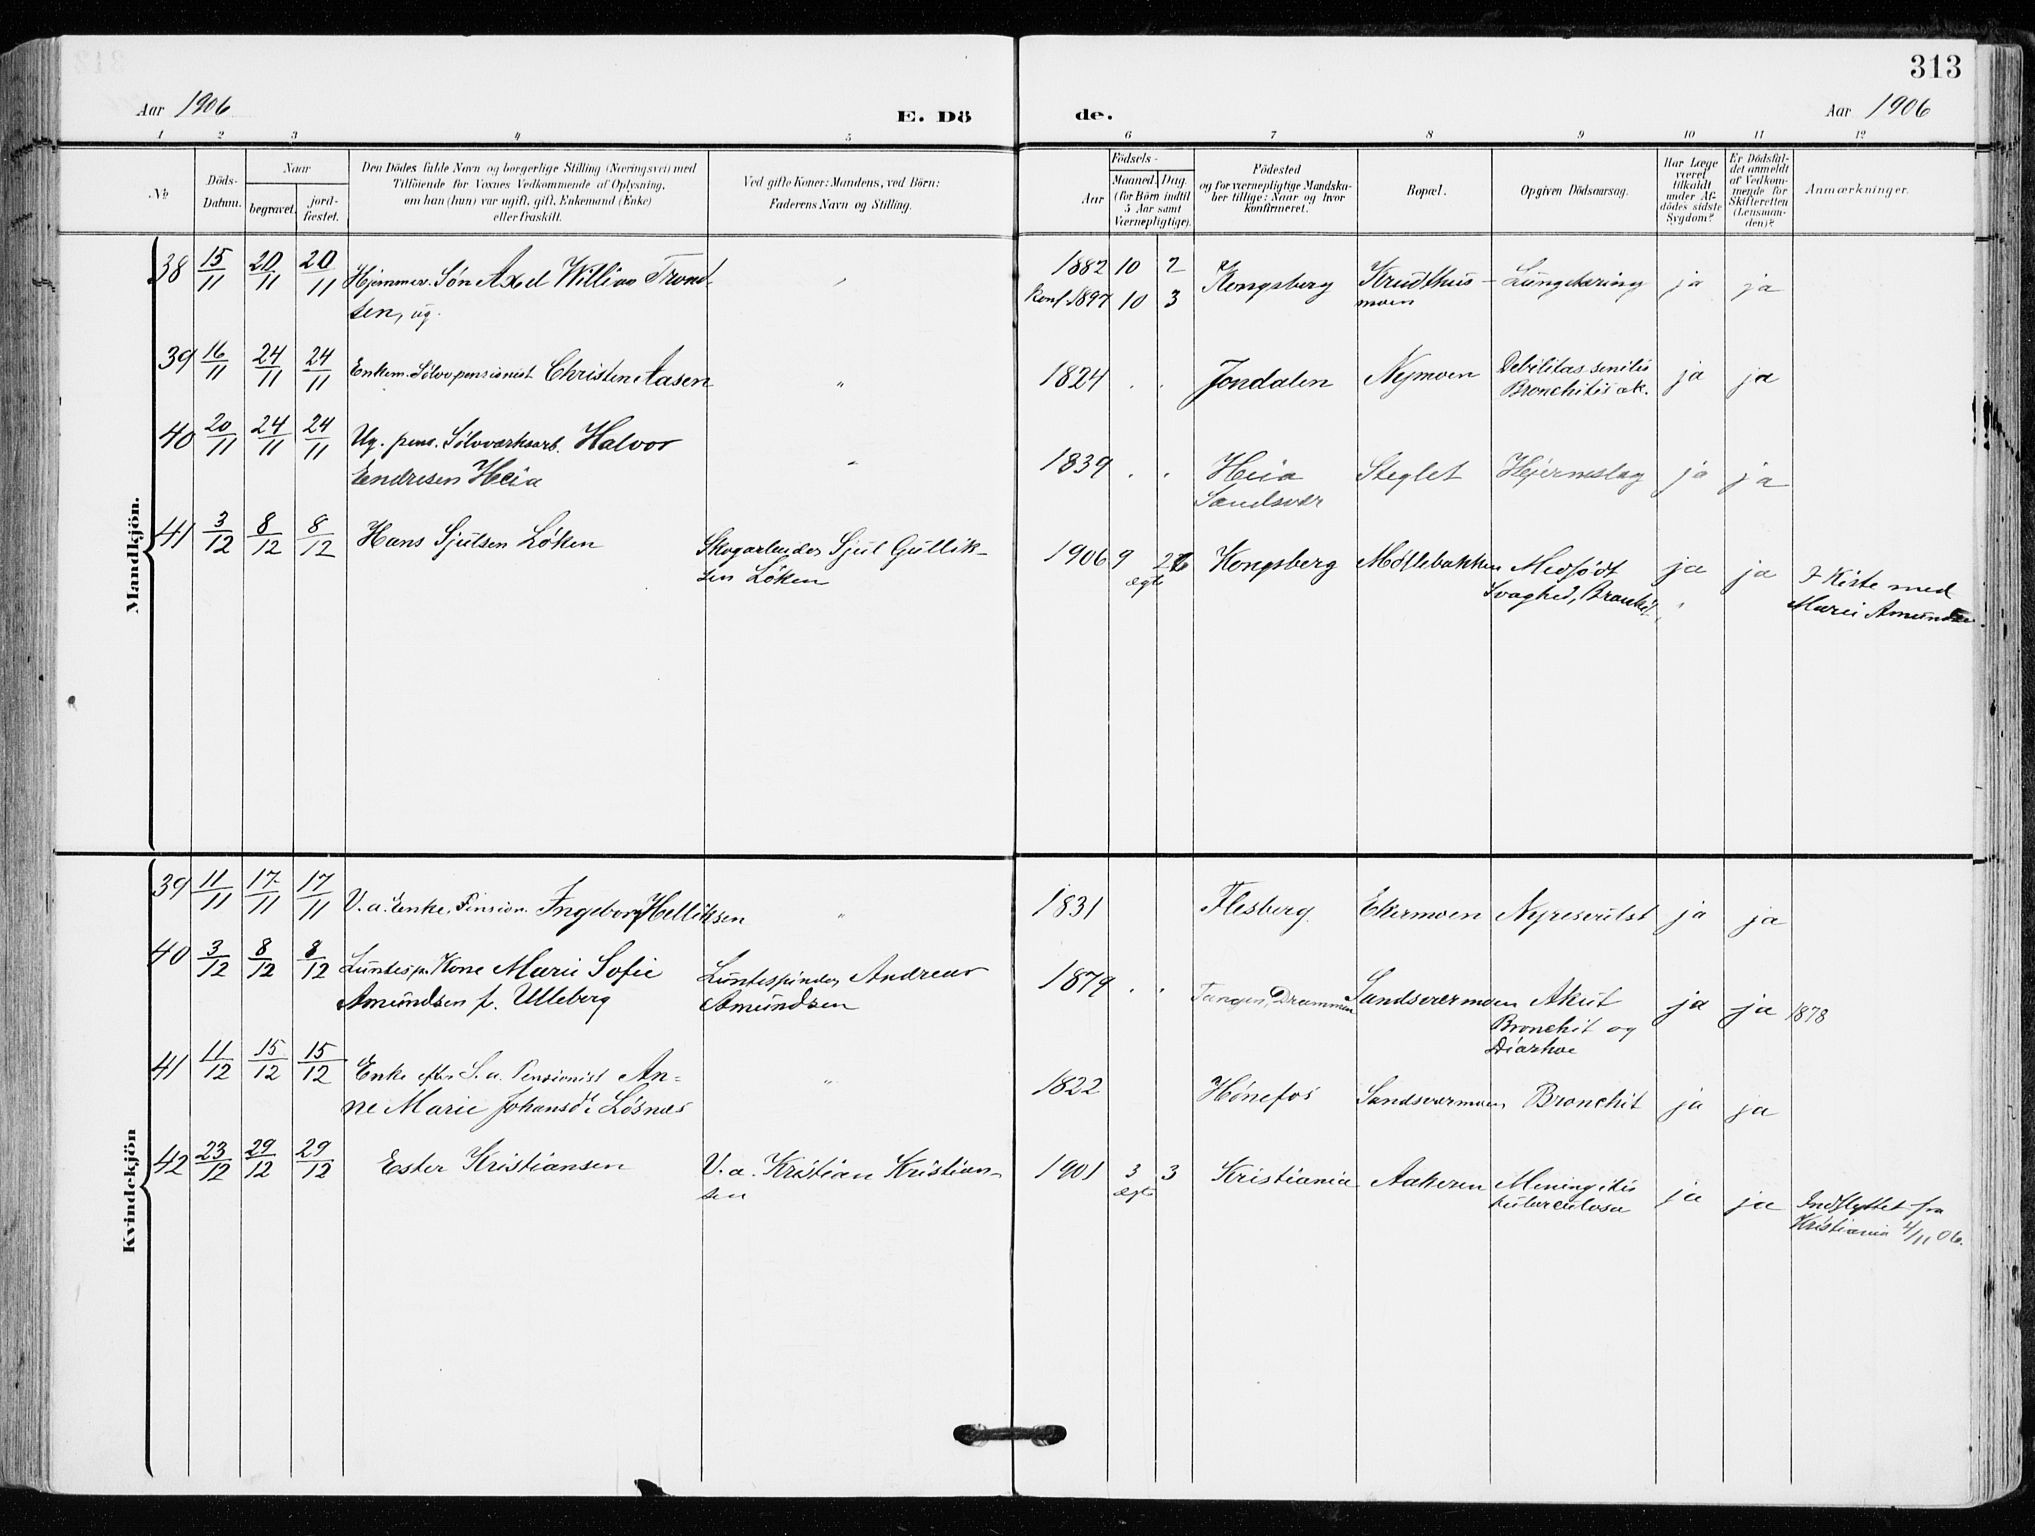 313
Aar 1906
E. Dö de.
Aar 1906
1 2 3 4 5 6 7 8 9 10 11 12
No.
Döds-
Datum.
Naar
begravet.
jord-
fæstet.
Den Dödes fulde Navn og borgerlige Stilling (Næringsvei) med
Tilföiende for Voxnes Vedkommende af Oplysning,
om han (hun) var ugift, gift, Enkemand (Enke)
eller fraskilt.
Ved gifte Koner: Mandens, ved Börn:
Faderens Navn og Stilling.
Födsels-
Aar
Maaned. Dag.
(for Börn indtil
5 Aar samt
Værnepligtige)
Födested
og for værnepligtige Mandska-
ber tillige: Naar og hvor
konfirmeret.
Bopæl.
Opgiven Dödsaarsag.
Har Læge
været
tilkaldt
under Af-
dödes sidste
Sygdom?
Er Dödsfal-
det anmeldt
af Vedkom-
mende for
Skifteretten
(Lensman-
den)?
Anmærkninger.
Mandkjön.
38 15/11 20/11 20/11 Hjemmev. Søn Axel William Trond-
sen, ug.
" 1882 10 2 Kongsberg Krudthus- Lungetæring ja ja
Konf 1897 10 3 moen
39 16/11 24/11 24/11 Enkem. Sølvv.pensionist Christen Aasen " 1824 . . Jondalen Nymoen Debilitas senilis ja ja
Bronchitis ak.
40 20/11 24/11 24/11 Ug. pens. Sølvværksarb. Halvor
Endresen Heia " 1839 . . Heia Steglet Hjerneslag ja ja
Sandsvær
41 3/12 8/12 8/12 Hans Sjulsen Løken Skogarbeider Sjul Gullik-
sen Løken
1906 9 26 Kongsberg Møllebakken Medfødt ja ja I Kiste med
ægte Svaghed, Bronkit. " Marie Amundsen
Kvindekjön
39 11/11 17/11 17/11 V.a. Enke, Pension. Ingeborg Helliksen " 1831 Flesberg Ekermoen Nyresvulst ja ja
40 3/12 8/12 8/12 Luntesp. Kone Marie Sofie Luntespinder Andreas
Amundsen f. Ulleberg Amundsen
1879 . . Tangen, Drammen Sandsværmoen Akut ja ja 1878
Bronchit og
Diarhoe
41 11/12 15/12 15/12 Enke efter S.a. Pensionist An-
ne Marie Johansdt. Løsnæs " 1822 Hønefos Sandsværmoen Bronchit ja ja
42 23/12 29/12 29/12 Ester Kristiansen V.a. Kristian Kristian-
sen
1901 3 3 Kristiania Aakeren Meningitis ja ja Indflyttet fra
ægte tuberculosa Kristiania 4/11 06.